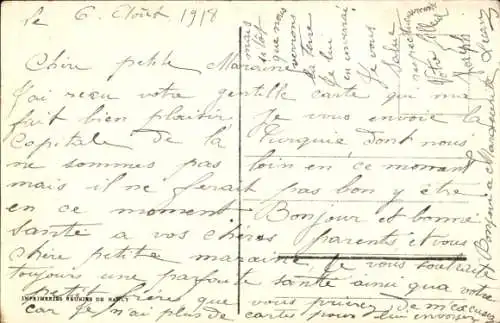 le 6 Août 1918
Chère petite Marraine
J'ai reçu votre gentille carte qui m'a
fait bien plaisir Je vous envoie la
Capitale de la Turquie dont nous
ne sommes pas loin en ce moment
mais il ne ferait pas bon y être
en ce moment Bonjour et bonne
santé a vos chères parents et vous
chère petite maraine Je vous souhaite
toujours une parfaite santé ainsi qua votre
petit frères que vous prierez de m'excuser
car Je n'ai plus de cartes pour lui envoyer
mais
sitôt
que nous
verrons
la ture
Je lui
en enverai
Je vous
Salue
respectueusement
Votre filleul
Joseph
Bonjour a Marguerite
IMPRIMERIES RÉUNIES DE NANCY